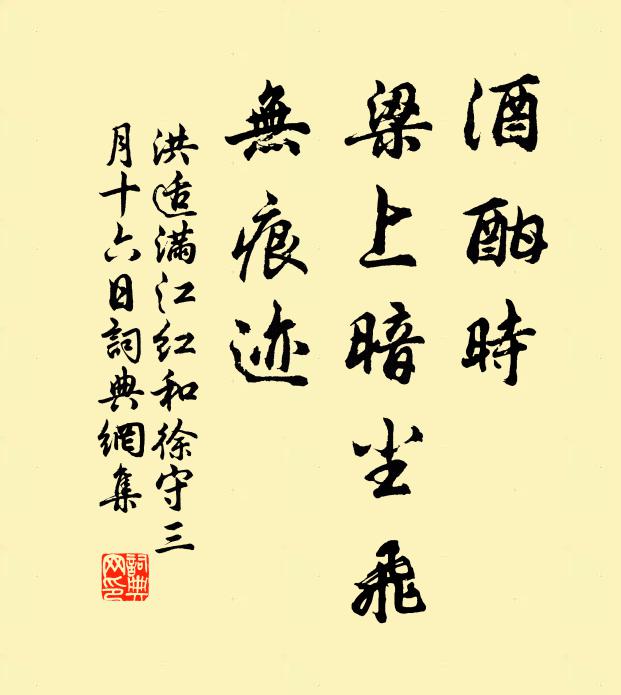 酒酣時
梁上暗尘飛
無痕迹
洪适滿江红和徐守三
月十六日詞典網集
詞典网印